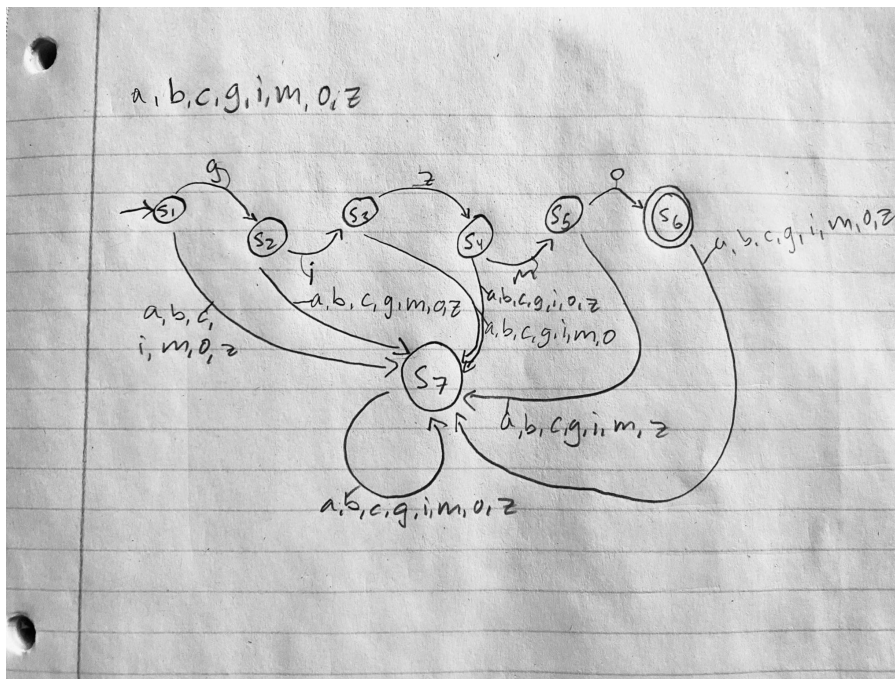 a, b, c, g, i, m, o, z
g
z
o
S1
S2
S3
S4
S5
S6
i
m
a, b, c, g, i, m, o, z
a, b, c,
i, m, o, z
a, b, c, g, m, o, z
a, b, c, g, i, o, z
a, b, c, g, i, m, o
S7
a, b, c, g, i, m, z
a, b, c, g, i, m, o, z